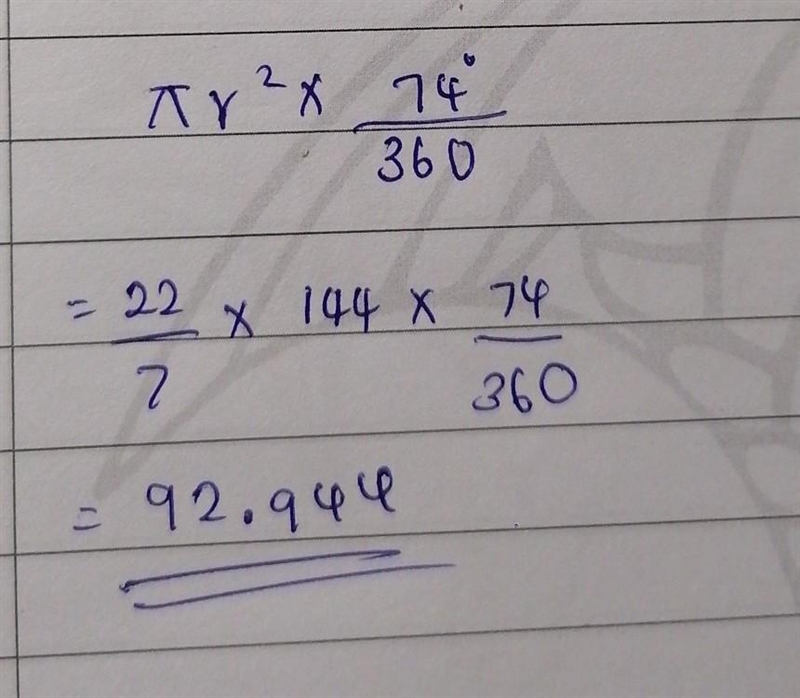 πr² × 74°/360
= 22/7 × 144 × 74/360
= 92.944